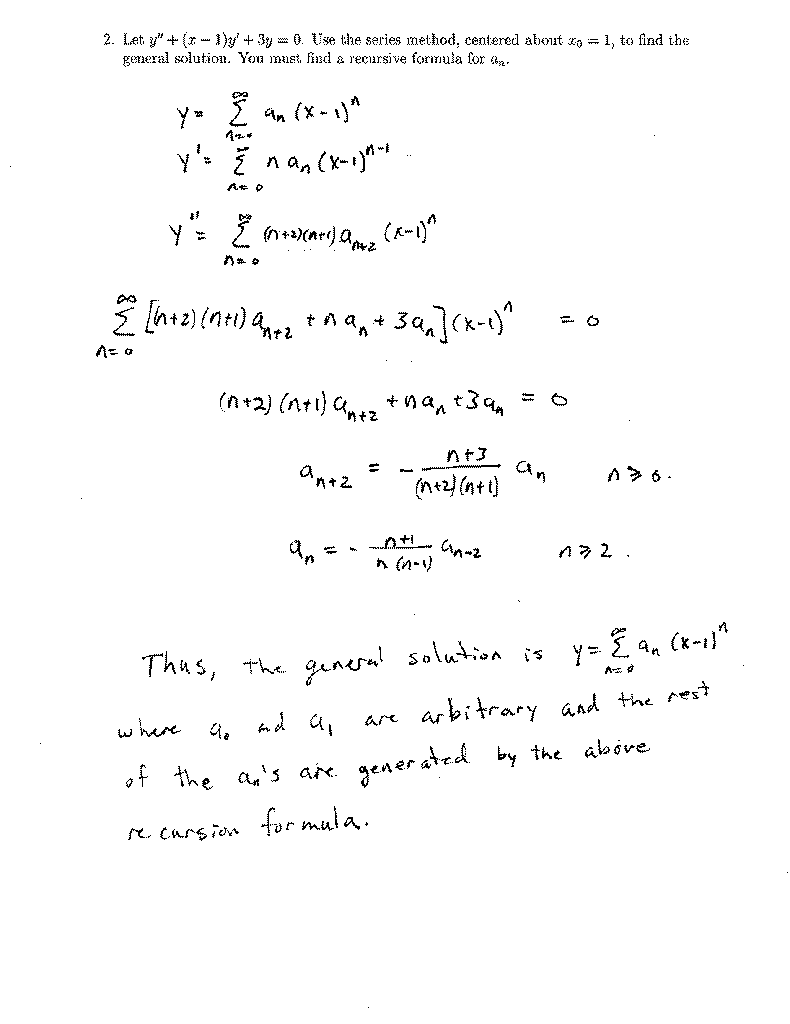 2. Let y″ + (x − 1)y′ + 3y = 0. Use the series method, centered about x₀ = 1, to find the
general solution. You must find a recursive formula for aₙ.
y = ∞ Σ n=0 aₙ (x-1)ⁿ
y' = ∞ Σ n=0 n aₙ (x-1)ⁿ⁻¹
y'' = ∞ Σ n=0 (n+2)(n+1) aₙ₊₂ (x-1)ⁿ
∞ Σ n=0 [(n+2)(n+1) aₙ₊₂ + n aₙ + 3aₙ](x-1)ⁿ = 0
(n+2)(n+1) aₙ₊₂ + n aₙ + 3aₙ = 0
aₙ₊₂ = - (n+3)/((n+2)(n+1)) aₙ n ≥ 0.
aₙ = - (n+1)/(n(n-1)) aₙ₋₂ n ≥ 2.
Thus, the general solution is y = ∞ Σ n=0 aₙ (x-1)ⁿ
where a₀ and a₁ are arbitrary and the rest
of the aₙ's are generated by the above
recursion formula.